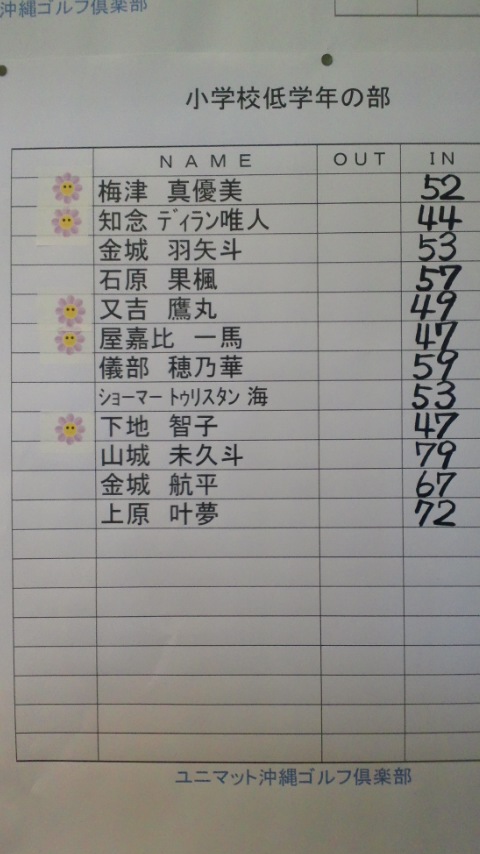 沖縄ゴルフ倶楽部
小学校低学年の部
NAME OUT IN
梅津 真優美 52
知念 ディラン唯人 44
金城 羽矢斗 53
石原 果楓 57
又吉 鷹丸 49
屋嘉比 一馬 47
儀部 穂乃華 59
ショーマートゥリスタン 海 53
下地 智子 47
山城 未久斗 79
金城 航平 67
上原 叶夢 72
ユニマット沖縄ゴルフ倶楽部